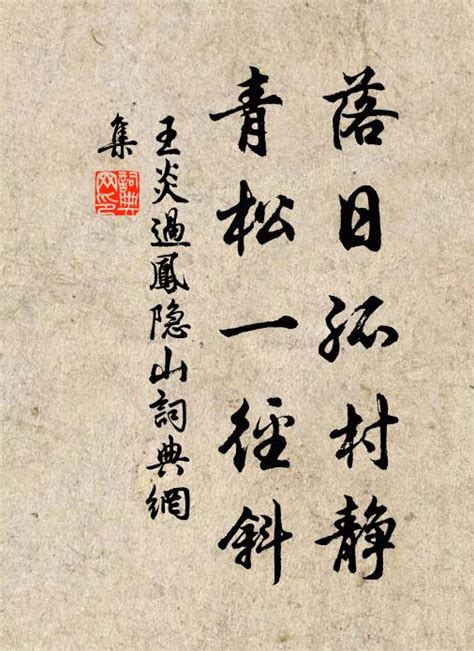 落日孤村静
青松一徑斜
王炎過鳳隐山詞典網
集
詞典网印